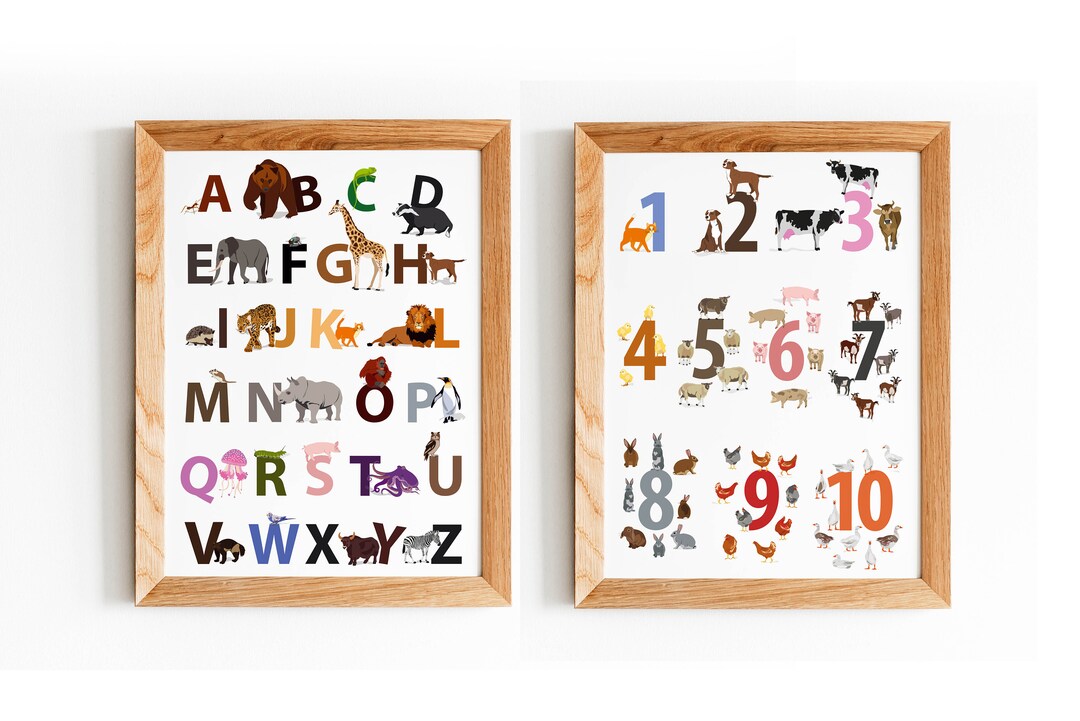 A B C D
E F G H
I J K L
M N O P
Q R S T U
V W X Y Z
1 2 3
4 5 6 7
8 9 10